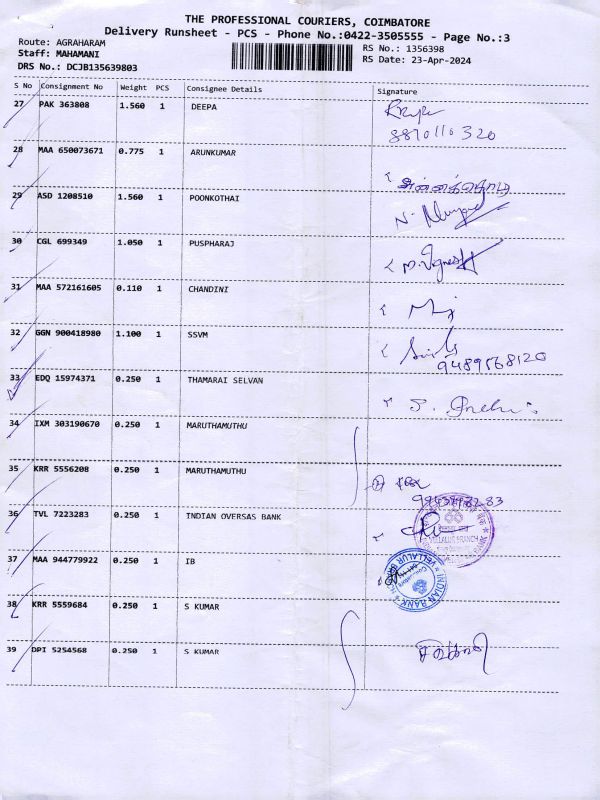 THE PROFESSIONAL COURIERS, COIMBATORE
Delivery Runsheet - PCS - Phone No.:0422-3505555 - Page No.:3
Route: AGRAHARAM
Staff: MAHAMANI
DRS No.: DCJB135639803
RS No.: 1356398
RS Date: 23-Apr-2024
S No Consignment No Weight PCS Consignee Details Signature
27 PAK 363808 1.560 1 DEEPA
8870110320
28 MAA 650073671 0.775 1 ARUNKUMAR
29 ASD 1208510 1.560 1 POONKOTHAI
30 CGL 699349 1.050 1 PUSPHARAJ
31 MAA 572161605 0.110 1 CHANDINI
32 GGN 900418980 1.100 1 SSVM
33 EDQ 15974371 0.250 1 THAMARAI SELVAN
34 IXM 303190670 0.250 1 MARUTHAMUTHU
35 KRR 5556208 0.250 1 MARUTHAMUTHU
36 TVL 7223283 0.250 1 INDIAN OVERSAS BANK
VELLALUR BRANCH
37 MAA 944779922 0.250 1 IB
INDIAN BANK
38 KRR 5559684 0.250 1 S KUMAR
39 DPI 5254568 0.250 1 S KUMAR